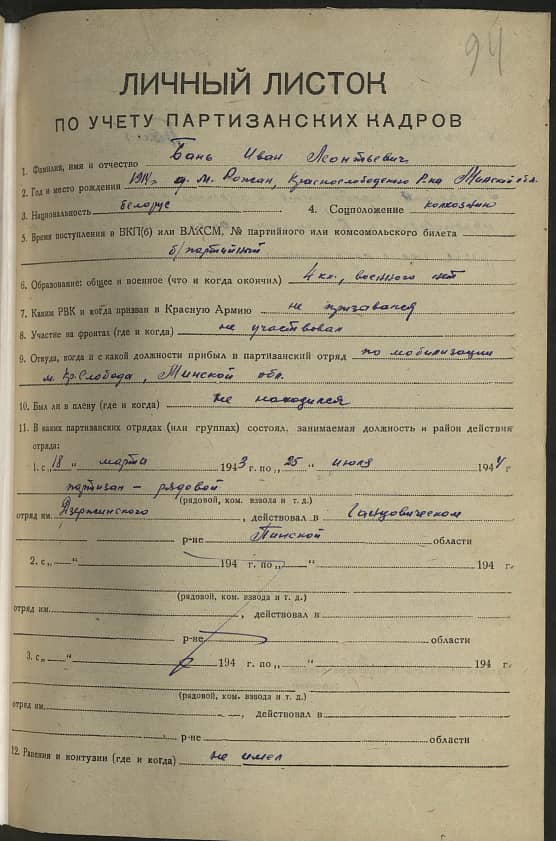 94
ЛИЧНЫЙ ЛИСТОК
ПО УЧЕТУ ПАРТИЗАНСКИХ КАДРОВ
1. Фамилия, имя и отчество Бань Иван Леонтьевич
2. Год и место рождения 1914г. д. М. Рожан, Краснослободского р-на Минской обл.
3. Национальность белорус 4. Соцположение колхозник
5. Время поступления в ВКП(б) или ВЛКСМ, № партийного или комсомольского билета
б/партийный
6. Образование: общее и военное (что и когда окончил) 4 кл., военного нет
7. Каким РВК и когда призван в Красную Армию не призавался
8. Участие на фронтах (где и когда) не участвовал
9. Откуда, когда и с какой должности прибыл в партизанский отряд по мобилизации
м. Кр. Слобода, Минской обл.
10. Был ли в плену (где и когда) не находился
11. В каких партизанских отрядах (или группах) состоял, занимаемая должность и район действия
отряда:
1. с „18 " марта 1943 г. по „25 " июля 1944 г
партизан – рядовой
(рядовой, ком. взвода и т. д.)
отряд им. Дзержинского, действовал в Ганцовическом
р-не Пинской области
2. с „ " 194 г. по „ " 194 г.
(рядовой, ком. взвода и т. д.)
отряд им. , действовал в
р-не области
3. с „ " 194 г. по „ " 194 г.
(рядовой, ком. взвода и т. д.)
отряд им. , действовал в
р-не области
12. Ранения и контузии (где и когда) не имел